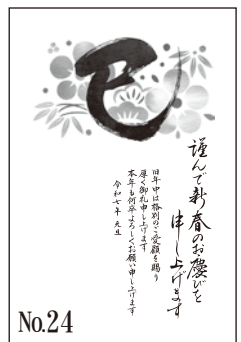 巳
謹んで新春のお慶びを
申し上げます
旧年中は格別のご愛顧を賜り
厚く御礼申し上げます
本年も何卒よろしくお願い申し上げます
令和七年 元旦
No.24